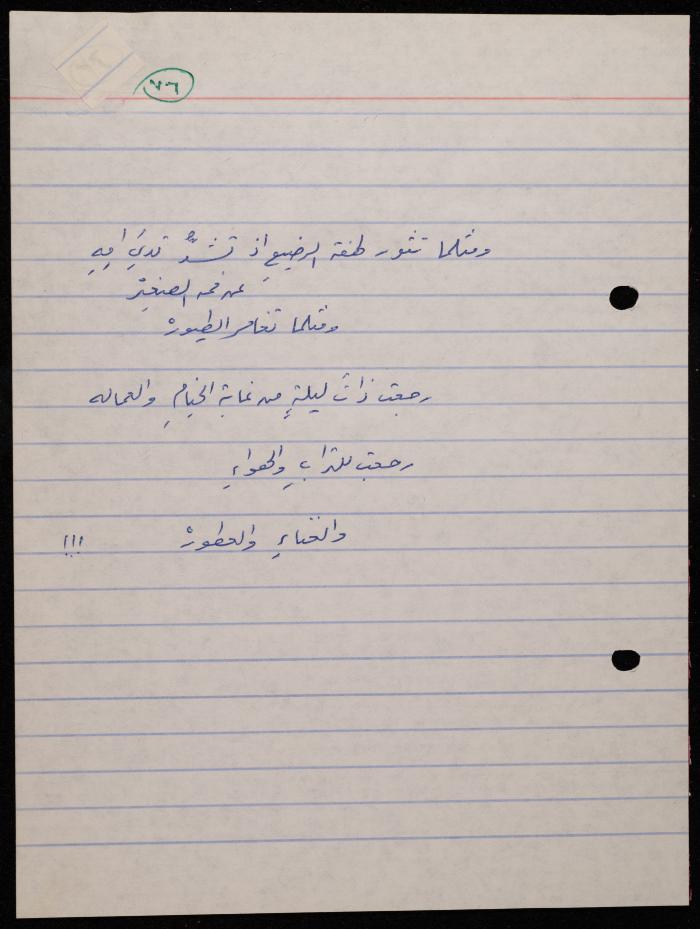 ٧٦
ومثلما تثور طفقة الرضيع إذ تشدُّ ثديَ أمِهِ
عن فمه الصغيرْ
ومثلما تغامر الطيورْ
رجعت ذاتَ ليلةٍ من غابة الخيامِ والعماله
رجعت للترابِ والهواءِ
والغناءِ والعطورْ !!!